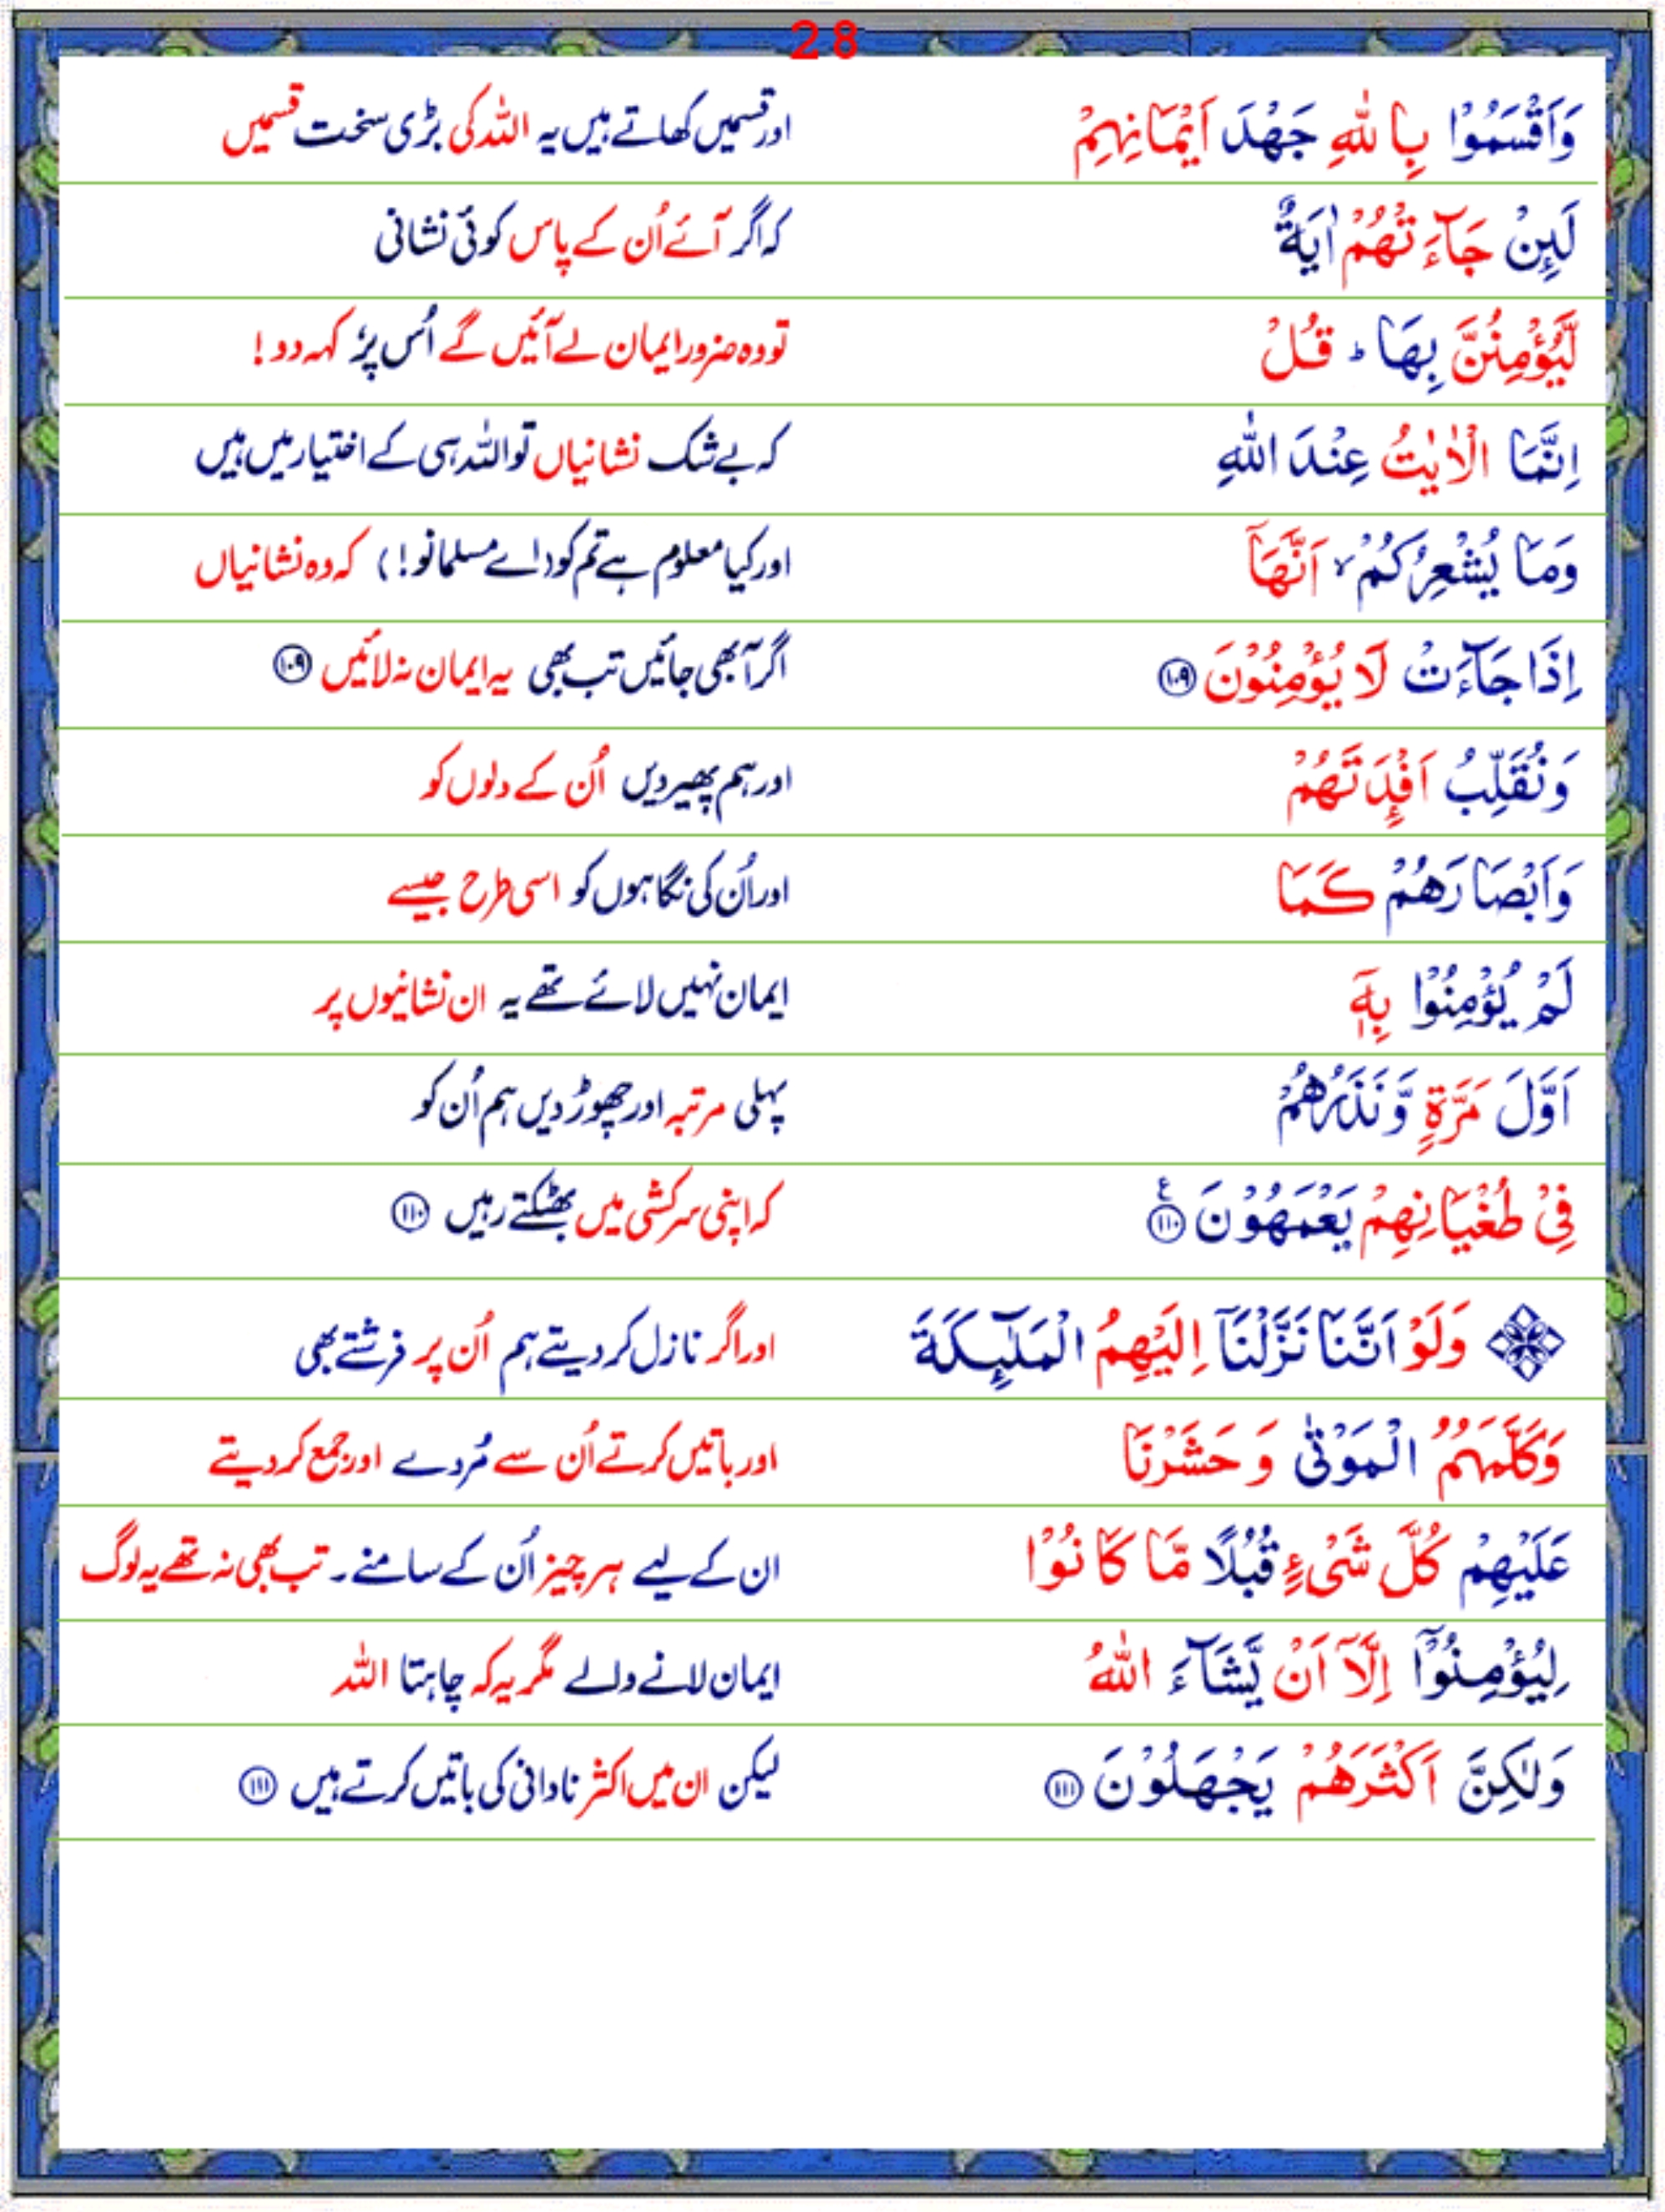 28
وَاَقْسَمُوْا بِاللّٰهِ جَهْدَ اَيْمَانِهِمْ اور قسمیں کھاتے ہیں یہ اللہ کی بڑی سخت قسمیں
لَىِٕنْ جَآءَتْهُمْ اٰيَةٌ کہ اگر آئے اُن کے پاس کوئی نشانی
لَّيُؤْمِنُنَّ بِهَا ؕ قُلْ تو وہ ضرور ایمان لے آئیں گے اُس پر، کہہ دو!
اِنَّمَا الْاٰيٰتُ عِنْدَ اللّٰهِ کہ بے شک نشانیاں تو اللہ ہی کے اختیار میں ہیں
وَمَا يُشْعِرُكُمْ ۙ اَنَّهَاۤ اور کیا معلوم ہے تم کو (اے مسلمانو!) کہ وہ نشانیاں
اِذَا جَآءَتْ لَا يُؤْمِنُوْنَ ۱۰۹ اگر آبھی جائیں تب بھی یہ ایمان نہ لائیں ۱۰۹
وَنُقَلِّبُ اَفْـِٕدَتَهُمْ اور ہم پھیر دیں اُن کے دلوں کو
وَاَبْصَارَهُمْ كَمَا اور اُن کی نگاہوں کو اسی طرح جیسے
لَمْ يُؤْمِنُوْا بِهٖۤ ایمان نہیں لائے تھے یہ ان نشانیوں پر
اَوَّلَ مَرَّةٍ وَّنَذَرُهُمْ پہلی مرتبہ اور چھوڑ دیں ہم اُن کو
فِيْ طُغْيَانِهِمْ يَعْمَهُوْنَ ۱۱۰ ع کہ اپنی سرکشی میں بھٹکتے رہیں ۱۱۰
وَلَوْ اَنَّنَا نَزَّلْنَاۤ اِلَيْهِمُ الْمَلٰٓىِٕكَةَ اور اگر نازل کر دیتے ہم اُن پر فرشتے بھی
وَكَلَّمَهُمُ الْمَوْتٰى وَحَشَرْنَا اور باتیں کرتے اُن سے مُردے اور جمع کر دیتے
عَلَيْهِمْ كُلَّ شَيْءٍ قُبُلًا مَّا كَانُوْا ان کے لیے ہر چیز اُن کے سامنے۔ تب بھی نہ تھے یہ لوگ
لِيُؤْمِنُوْۤا اِلَّاۤ اَنْ يَّشَآءَ اللّٰهُ ایمان لانے والے مگر یہ کہ چاہتا اللہ
وَلٰكِنَّ اَكْثَرَهُمْ يَجْهَلُوْنَ ۱۱۱ لیکن ان میں اکثر نادانی کی باتیں کرتے ہیں ۱۱۱